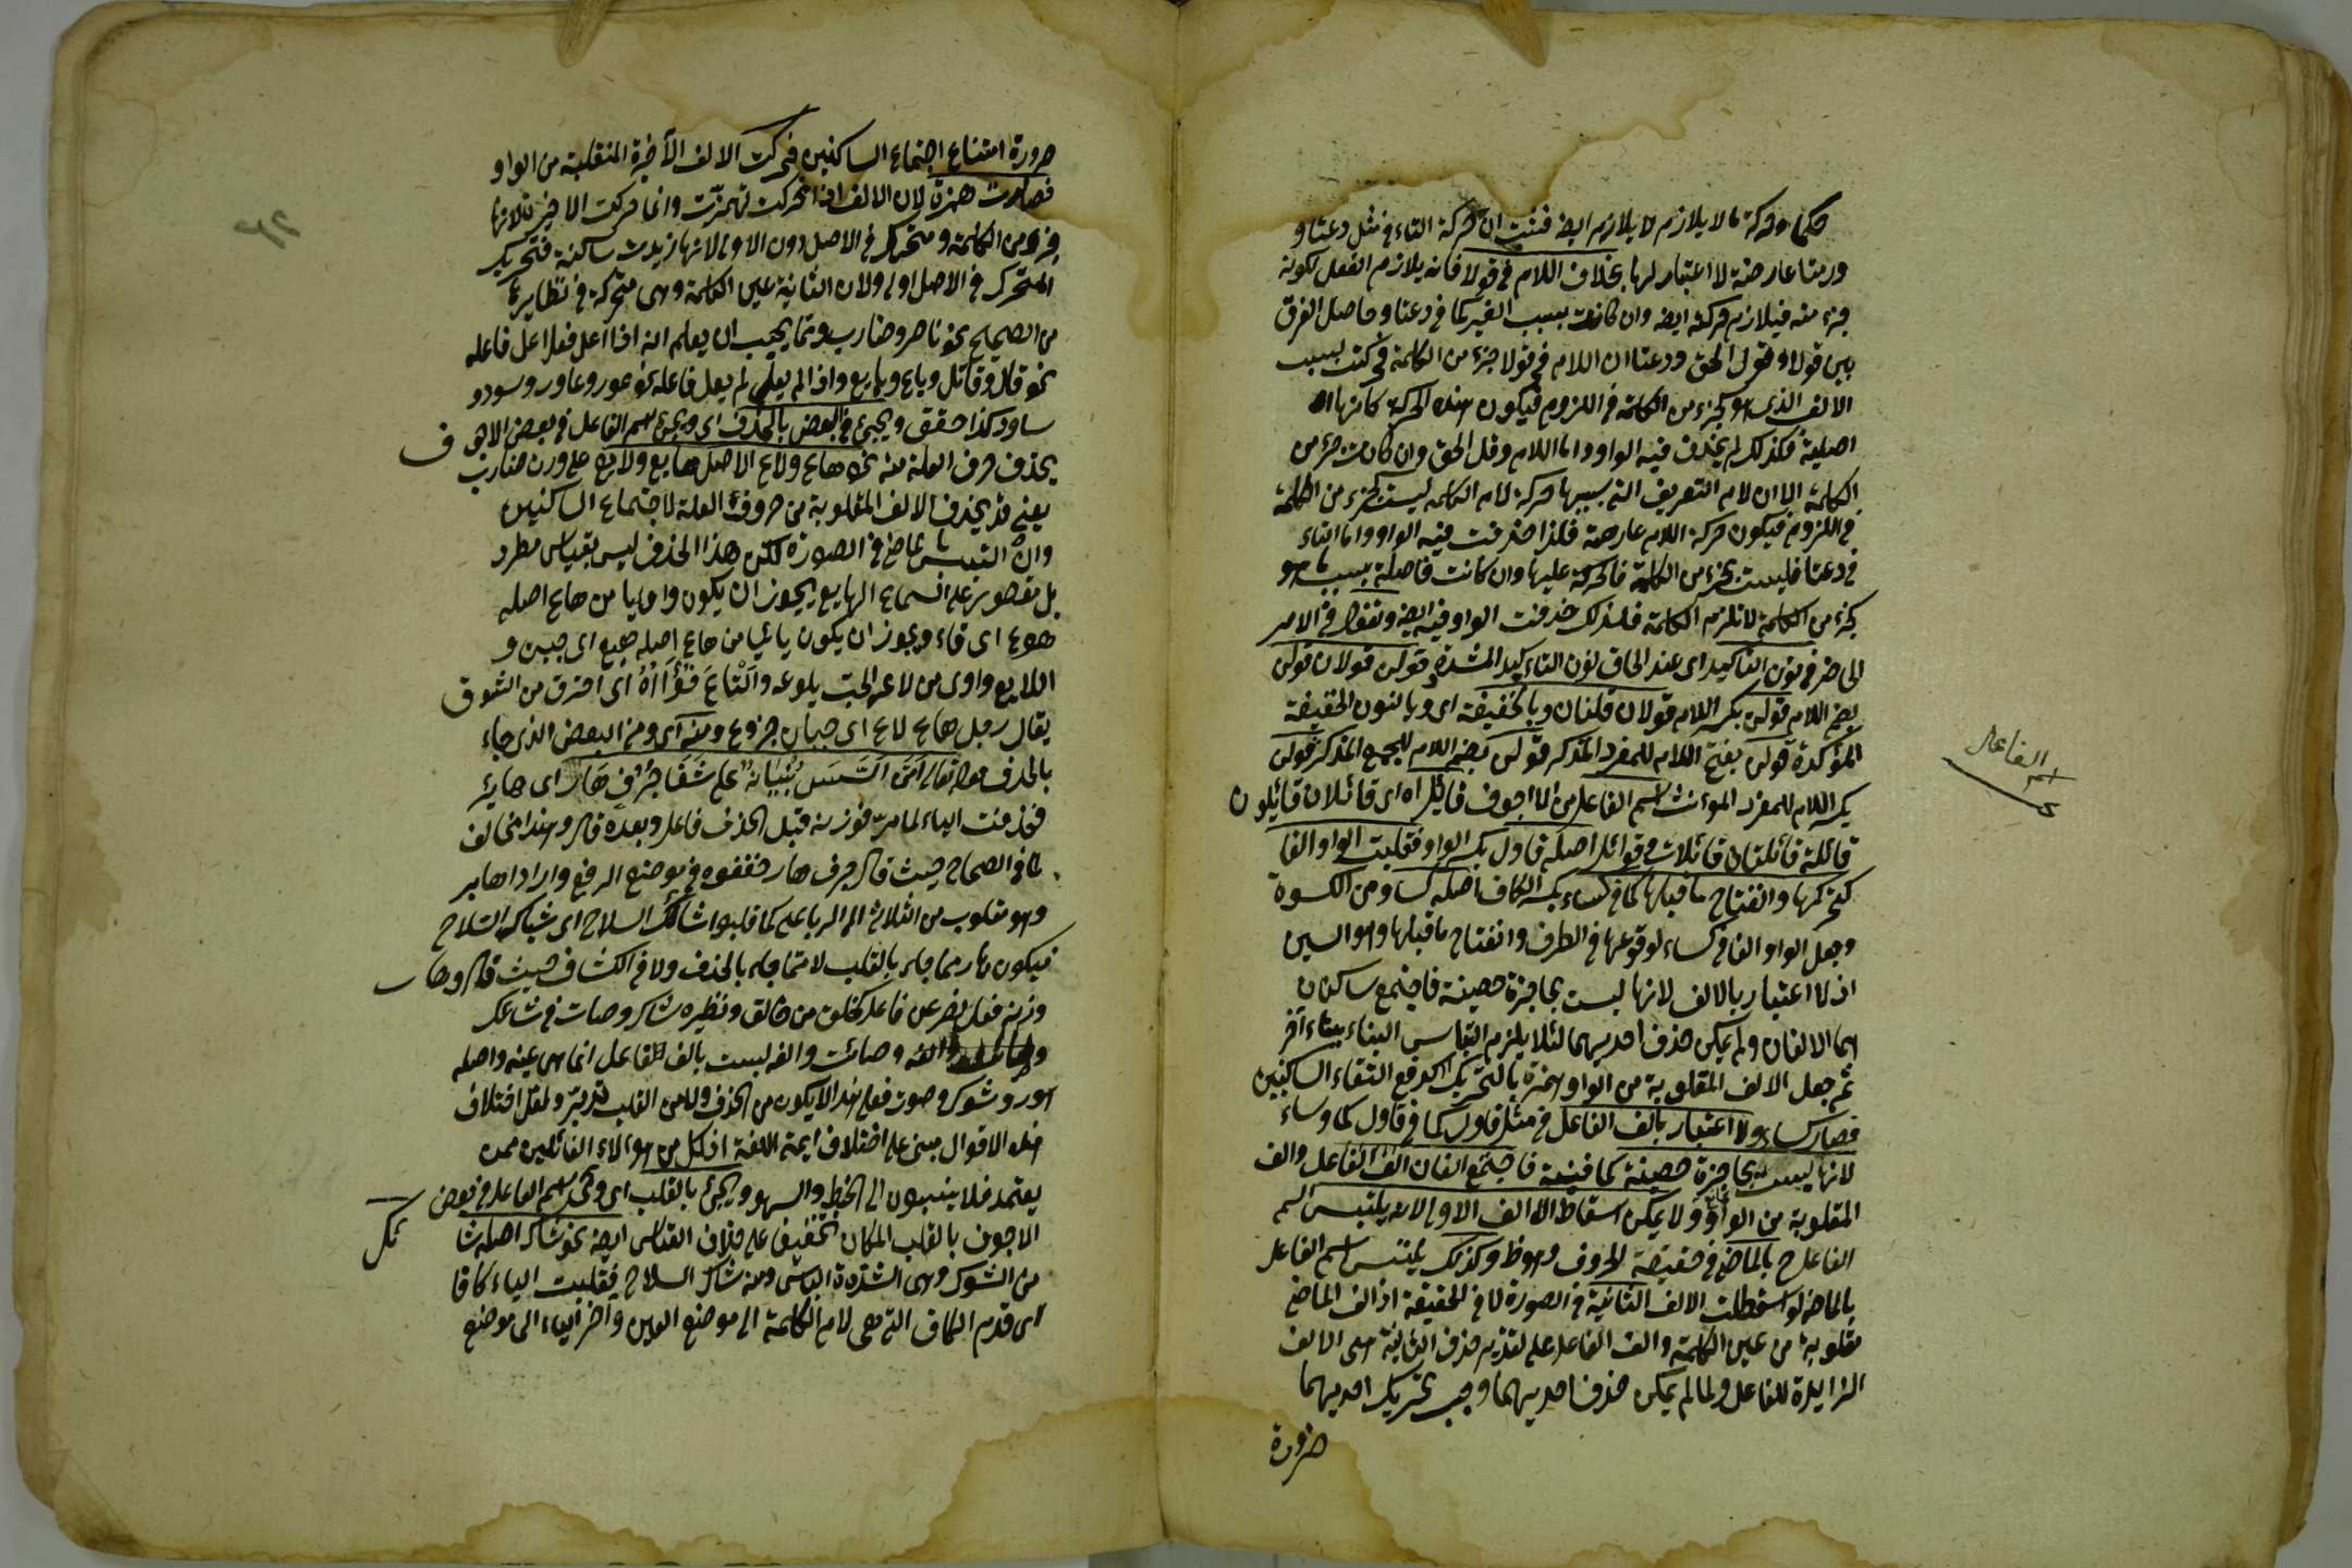 حكما وحركة ما لا يلازم لا يلازم ايضا فثبت ان حركة التاء في مثل دعتا و
ورمتا عارضة لا اعتبار لها بخلاف اللام في قولا فانه يلازم الفعل لكونه
جزء منه فيلازم حركته ايضا وان كانت بسبب الغير كما في دعتا وحاصل الفرق
بين قولا وقول الحق ودعتا ان اللام في قولا جزء من الكلمة حركت بسبب
الالف الذي هو كجزء من الكلمة في اللزوم فيكون هذه الحركة كانها
اصلية فكذلك لم يحذف فيه الواو واما اللام وقل الحق وان كانت جزء من
الكلمة الا ان لام التعريف التي بسببها حركة لام الكلمة ليست كجزء من الكلمة
في اللزوم فيكون حركة اللام عارضة فلذا حذفت فيه الواو واما التاء
في دعتا فليست بجزء من الكلمة فالحركة عليها وان كانت حاصلة بسبب ما هو
كجزء من الكلمة لا تلزم الكلمة فلذلك حذفت الواو فيه ايضا وتقول في الامر
الحاضر في نون التأكيد اي عند الحاق نون التاكيد المشددة قولن قولان قولن
بضم اللام قولن بكسر اللام قولان قلنان وبالخفيفة اي وبالنون الخفيفة
المؤكدة قولن بفتح اللام للمفرد المذكر قولن بضم اللام للجمع المذكر قولن
بكسر اللام للمفرد المؤنث اسم الفاعل من الاجوف قائل اه اي قائلان قائلون
قائلة قائلتان قائلات وقوائل اصله قاول بكسر الواو فقلبت الواو الفا
لتحركها وانفتاح ما قبلها كما في كساء بكسر الكاف اصله كساو من الكسوة
وجعل الواو الفا في كساء لوقوعها في الطرف وانفتاح ما قبلها وهو السين
اذ لا اعتبار بالالف لانها ليست بحاجزة حصينة فاجتمع ساكنان
هما الالفان ولم يمكن حذف احديهما لئلا يلزم التباس البناء ببناء آخر
ثم جعل الالف المقلوبة من الواو همزة بالتحريك لدفع التقاء الساكنين
فصار كساء ولا اعتبار بالف الفاعل في مثل قاول كما في قاول كما وساء
لانها ليست بحاجزة حصينة كما فيه فاجتمع الفان الف الفاعل والف
المقلوبة من الواو ولا يمكن اسقاط الالف الاولى لانه يلتبس اسم
الفاعل ح بالماضي في حقيقة الحروف وهو ظ وكذلك يلتبس اسم الفاعل
بالماضي لو اسقطت الالف الثانية في الصورة لا في الحقيقة اذ الف الماضي
مقلوبة من عين الكلمة والف الفاعل على تقدير حذف الثانية هي الالف
الزايدة للفاعل ولما لم يمكن حذف احديهما وجب تحريك احديهما
ضرورة
اسم الفاعل
ضرورة امتناع اجتماع الساكنين فحركت الالف الاخيرة المنقلبة من الواو
فصارت همزة لان الالف اذا تحركت تهمزت وانما حركت الاخيرة لانها
جزء من الكلمة ومتحرك في الاصل دون الاولى لانها زيدت ساكنة فتحريك
المتحرك في الاصل اولى ولان الثانية عين الكلمة وهي متحركة في نظايرها
من الصحيح نحو ناصر وضارب ومما يجب ان يعلم انه اذا اعل فعل اعل فاعله
نحو قال وقائل وباع وبايع واذا لم يعل لم يعل فاعله نحو عور وعاور وسود و
ساود كذا حقق ويجيء في البعض بالحذف اي ويجيء اسم الفاعل في بعض الاجوف
بحذف حرف العلة منه نحو هاع ولاع الاصل هايع ولايع على وزن ضارب
يعني قد يحذف الالف المقلوبة من حروف العلة لاجتماع الساكنين
وان التبس بالماضي في الصورة لكن هذا الحذف ليس بقياس مطرد
بل مقصور على السماع الهايع يجوز ان يكون واويا من هاع اصله
هوع اي قاء ويجوز ان يكون يائيا من هاع اصله هيع اي جبن و
اللايع واوي من لاعه الحب يلوعه والتاع فؤاده اي احترق من الشوق
يقال رجل هاع لاع اي جبان جزوع ومنه اي ومن البعض الذي جاء
بالحذف قوله تعالى ام من اسس بنيانه على شفا جرف هار اي هاير
فحذفت الياء لما مر فوزنه قبل الحذف فاعل وبعده فال وهذا مخالف
لما في الصحاح حيث قال جرف هار خفضوه في موضع الرفع وارادوا هاير
وهو مقلوب من الثلاثي الى الرباعي كما قلبوا شائك السلاح اي شاك السلاح
فيكون هار مما جاء بالقلب لا مما جاء بالحذف ولا في الكشاف حيث قال وهار
وزنه فعل قصر عن فاعل كخلف من خالف ونظيره شاك وصات في شائك
وصائت والفه ليست بالف الفاعل انما هي عينه واصله
هور وشوك وصوت فعلى هذا لا يكون من الحذف ولا من القلب تدبر ولعل اختلاف
هذه الاقوال مبني على اختلاف ايمة اللغة اذ كل من هؤلاء القائلين ممن
يعتمد فلا ينسبون الى الخبط والسهو ويجيء بالقلب اي ويجيء اسم الفاعل في بعض
الاجوف بالقلب المكان تخفيفا على خلاف القياس ايضا نحو شاك اصله شا
من الشوك وهي الشدة والبأس ومنه شاك السلاح فقلبت الياء كافا
اي قدم الكاف التي هي لام الكلمة الى موضع العين وآخر الياء الى موضع